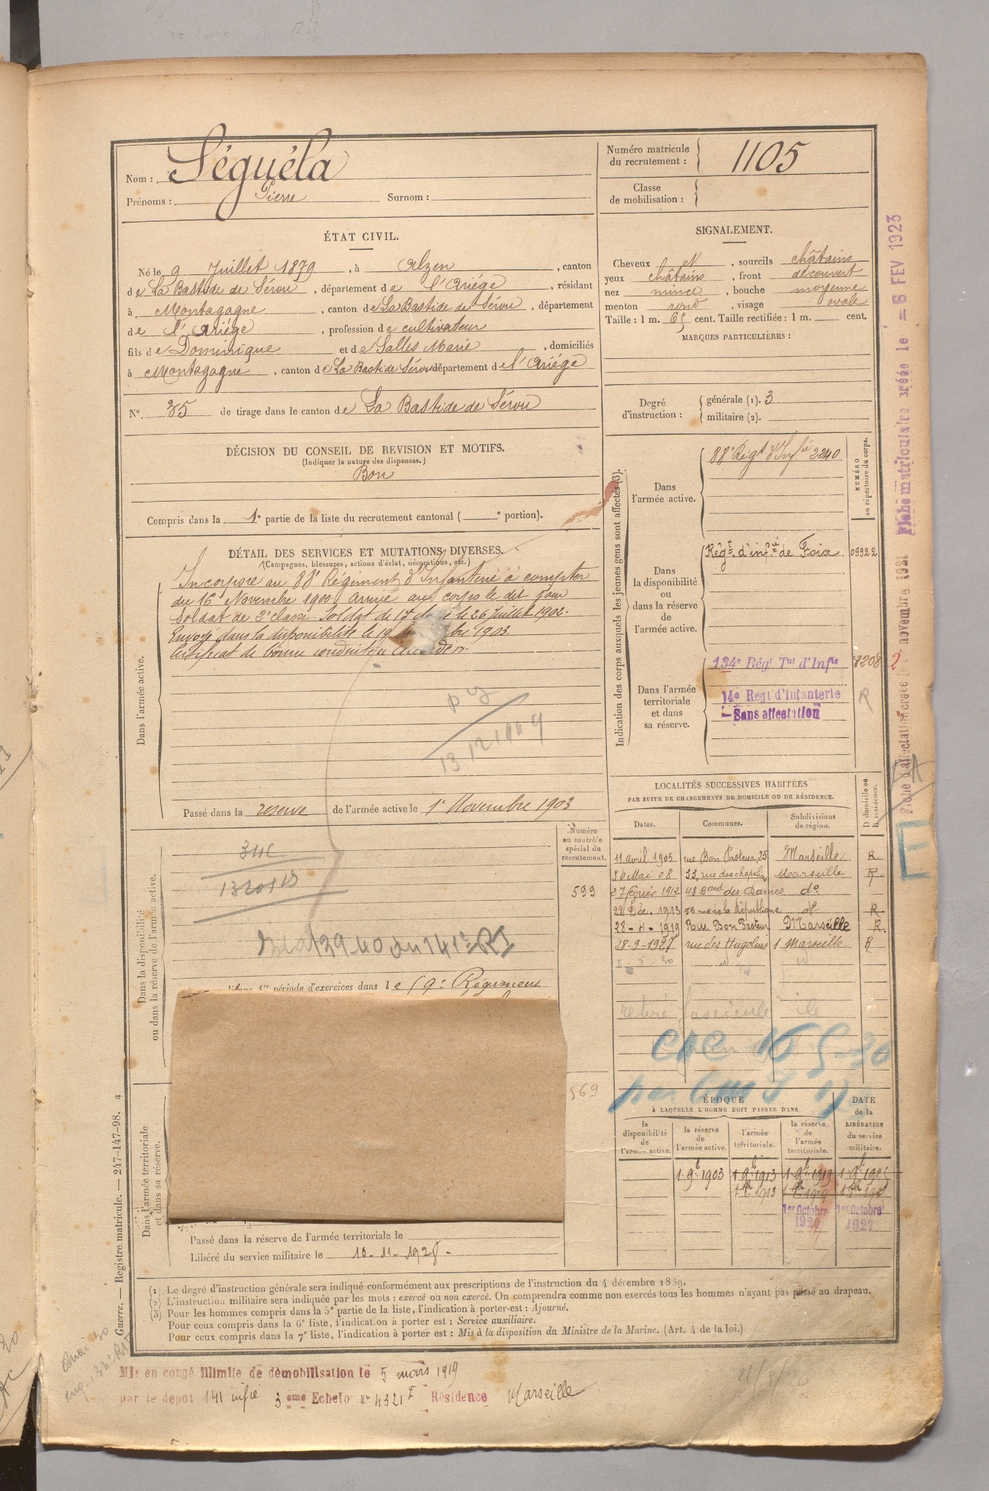 Nom : Séguéla
Prénoms : Pierre Surnom :
Numéro matricule du recrutement : 1105
Classe de mobilisation :
ÉTAT CIVIL.
Né le 9 Juillet 1879, à Alzen, canton
de La Bastide de Sérou, département de l'Ariége, résidant
à Montagagne, canton de La Bastide de Sérou, département
de l'Ariége, profession de cultivateur
fils de Dominique et de Salles Marie, domiciliés
à Montagagne, canton de La Bastide Sérou département de l'Ariége
N°. 35 de tirage dans le canton de La Bastide de Sérou
SIGNALEMENT.
Cheveux et, sourcils châtains
yeux châtains, front découvert
nez mince, bouche moyenne
menton rond, visage ovale
Taille : 1 m. 65 cent. Taille rectifiée : 1 m. cent.
MARQUES PARTICULIÈRES :
Degré d'instruction : générale (1). 3
militaire (2).
DÉCISION DU CONSEIL DE REVISION ET MOTIFS.
(Indiquer la nature des dispenses.)
Bon
Compris dans la 1e partie de la liste du recrutement cantonal ( e portion).
DÉTAIL DES SERVICES ET MUTATIONS DIVERSES.
(Campagnes, blessures, actions d'éclat, décorations, etc.)
Dans l'armée active.
Incorporé au 88e Régiment d'Infanterie à compter
du 16 Novembre 1900. Arrivé au corps le dit jour
Soldat de 2e classe. Soldat de 1e le 26 Juillet 1902.
Envoyé dans la disponibilité le 19 1903.
Certificat de bonne conduite
Passé dans la réserve de l'armée active le 1er Novembre 1903
Indication des corps auxquels les jeunes gens sont affectés (3).
NUMÉRO au répertoire du corps.
Dans l'armée active.
88e Régt d'Infie 3240
Dans la disponibilité ou dans la réserve de l'armée active.
Régt d'infie de Foix 03922
Dans l'armée territoriale et dans sa réserve.
134e Régt Tal d'Infie 8208
14e Regt d'Infanterie
Sans affectation
R
2
Fiche matriculaire créée le 8 FEV 1923
novembre 1921
LOCALITÉS SUCCESSIVES HABITÉES
PAR SUITE DE CHANGEMENTS DE DOMICILE OU DE RÉSIDENCE.
Dates. Communes. Subdivisions de région. D domicile ou R résidence.
11 avril 1905 rue Bon Pasteur, 25 Marseille R
30 Mai 08 33, rue des chapelins Marseille R
27 février 1912 48 Bard des Dames do
22 Déc. 1913 République do R
28-4-1919 Rue Bon Pasteur Marseille R
28-9-1927 rue des Hugolins 1 Marseille R
Numéro au contrôle spécial du recrutement.
599
569
Dans la disponibilité ou dans la réserve de l'armée active.
période d'exercices dans le 19e Régiment
fascicule
Dans l'armée territoriale et dans sa réserve.
Passé dans la réserve de l'armée territoriale le
Libéré du service militaire le 10-11-1928.
ÉPOQUE
À LAQUELLE L'HOMME DOIT PASSER DANS
la disponibilité de l'armée active.
la réserve de l'armée active.
l'armée territoriale.
la réserve de l'armée territoriale.
DATE de la LIBÉRATION du service militaire.
1 9e 1903 1 9e 1913 1 9e 1919
1er Octobre 1er Octobre
1927
(1) Le degré d'instruction générale sera indiqué conformément aux prescriptions de l'instruction du 4 décembre 1889.
(2) L'instruction militaire sera indiquée par les mots : exercé ou non exercé. On comprendra comme non exercés tous les hommes n'ayant pas passé au drapeau.
(3) Pour les hommes compris dans la 5e partie de la liste, l'indication à porter est : Ajourné.
Pour ceux compris dans la 6e liste, l'indication à porter est : Service auxiliaire.
Pour ceux compris dans la 7e liste, l'indication à porter est : Mis à la disposition du Ministre de la Marine. (Art. 4 de la loi.)
Guerre. — Registre matricule. — 247-147-98. 4
Mis en congé illimité de démobilisation le 5 mars 1919
par le dépot 141 infie 3eme Echelon n° 4321 I Résidence Marseille